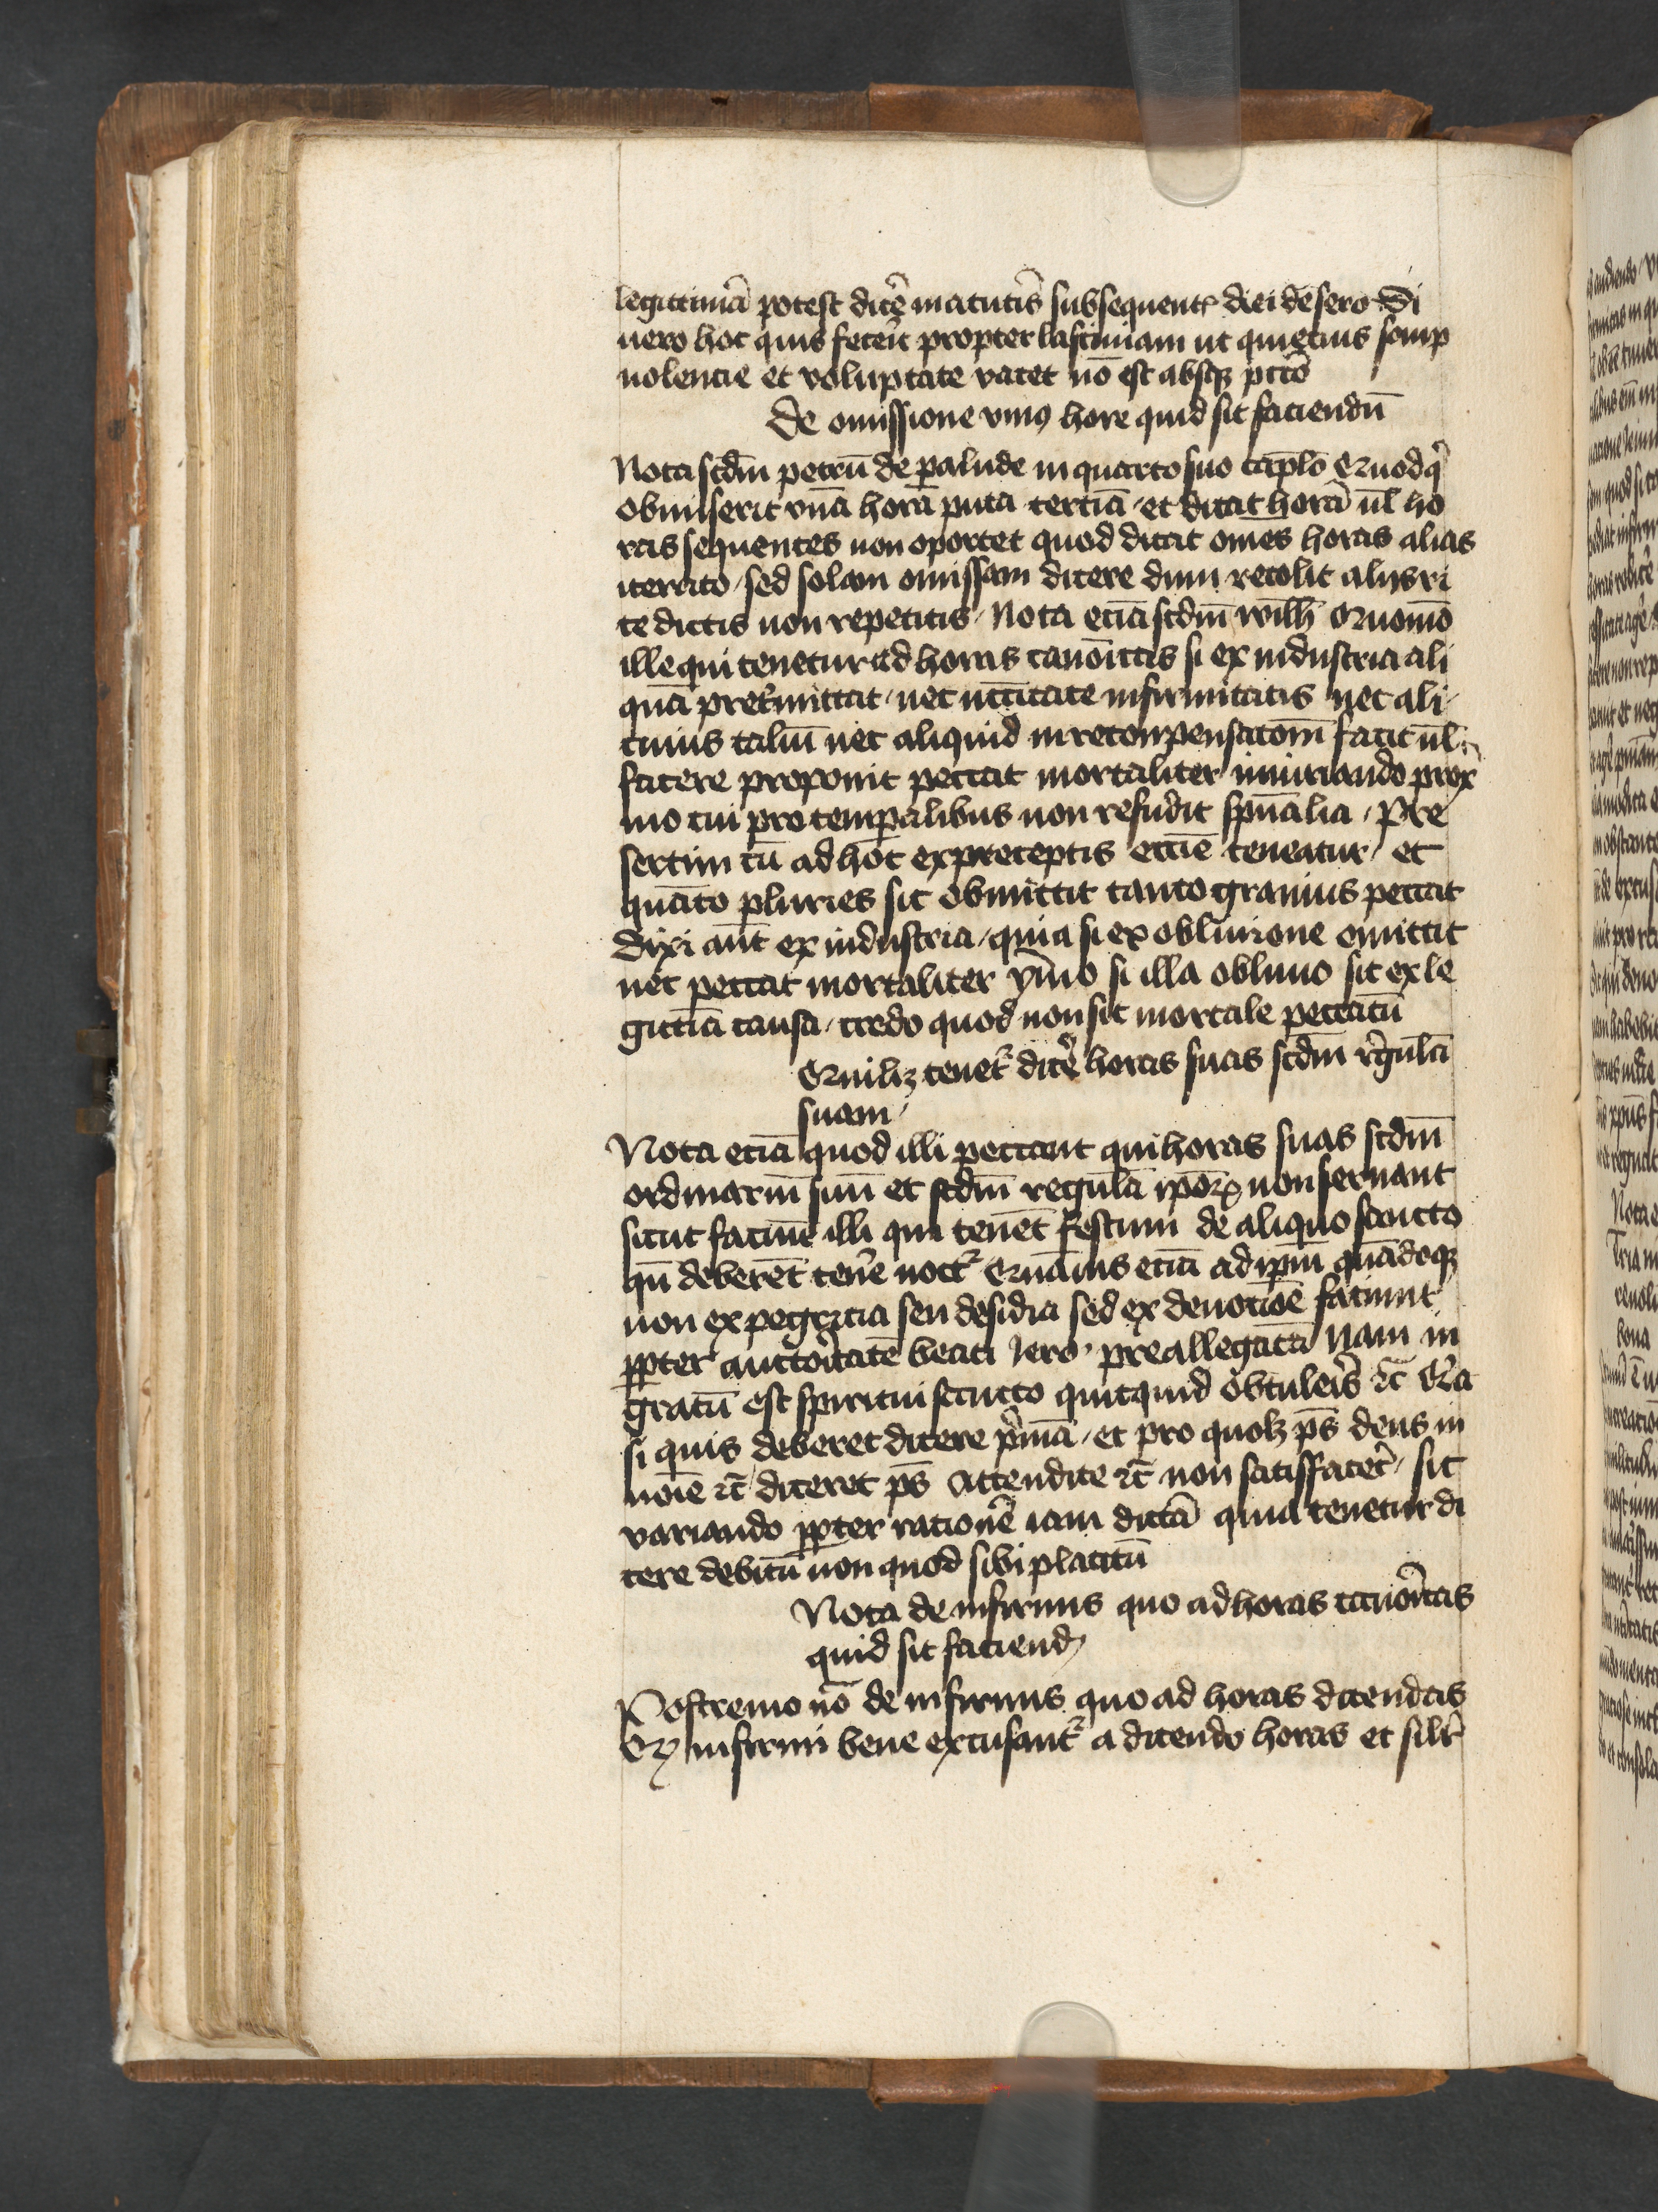 legittimā potest dicē matutīs subsequentꝭ diei de sero Si
uero hoc quis fecērit propter lasciuiam ut quiecius somp
nolencie et voluptate vacet nō est absqꝫ pctō
De omissione vniꝰ hore quid sit faciendū
Nota scdm̄ petrū de palude in quarto suo cap̄lo Quod q̇
obmiserit vnā horā puta terciā / et dicat horā ul̄ ho
ras sequentes non oportet quod dicat om̄es horas alias
iterato / sed solam omissam dicere dum recolit alijs ri
te dictis non repetitis / Nota eciā scdm̄ wilh̄ Quomō
ille qui tenetur ad horas canōicas si ex industria ali
quā pretermittat / nec nccītate infirmitatis nec ali /
cuius taliū nec aliquid in reconpensacōm facit ul̄
facere proponit peccat mortaliter iniuriando prox
mo cui pro temporalibus non refudit spūalia / Pre
sertim cū ad hoc ex preceptis eccīe teneatur / et
quāto pluries sic obmittit tanto grauius peccat
Dixi aūt ex industria / quia si ex obliuione omittit
nec peccat mortaliter ymo si illa obliuio sit ex le
gittīa causa / credo quod non sit mortale peccatū
Quilꝫ tenet᷑ dicē horas suas scdm̄ regulā
suam /
Nota eciā quod illi peccant qui horas suas scdm̄
ordinariū suū et scdm̄ regulā ipōꝝ non seruant
sicut faciūt illi qui tenēt festum de aliquo sancto
qn̄ deberēt tenē noct᷑ Quāuis eciā ad ipm̄ quādoqꝫ
non ex pegricia seu desidia sed ex deuocōe faciunt
ꝓpter auctoritatē beati Iero. preallegatā Nam in
gratū est spiritui sancto quitquid obtuleris ⁊c̄ Q̄a
si quis deberet dicere p̄mā / et pro quolꝫ ps̄ deus in
noīe ⁊c̄ diceret ps̄ Attendite ⁊c̄ non satisfacet᷑ / sic
variando ꝓpter racionē iam dictā quia tenetur di
cere debitū non quod sibi placitū
Nota de infirmis quo ad horas canōicas
quid sit faciendꝫ
Postremo nō de infirmis quo ad horas dicendas
Qꝫ infirmi bene excusant᷑ a dicendo horas et silr̄